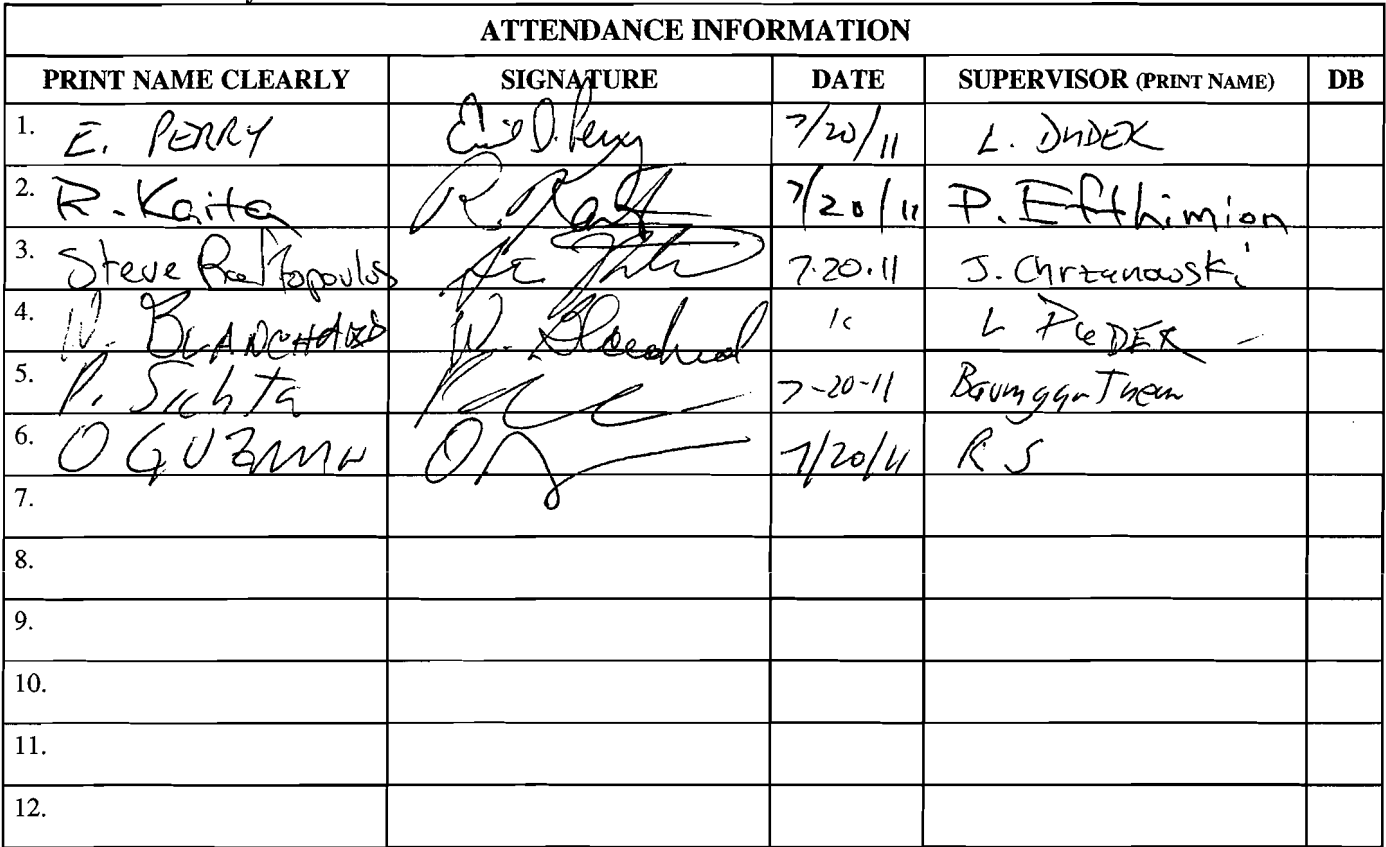 ATTENDANCE INFORMATION
PRINT NAME CLEARLY SIGNATURE DATE SUPERVISOR (PRINT NAME) DB
1. E. PERRY 7/20/11 L. DUDEK
2. R. Kaita R. Kaita 7/20/11 P. Efthimion
3. Steve Raftopoulos 7.20.11 J. Chrzanowski
4. W. BLANCHARD W. Blanchard L DUDEK
5. P. Sichta 7-20-11 Baumgartner
6. O GUZMAN 7/20/11 R S
7.
8.
9.
10.
11.
12.